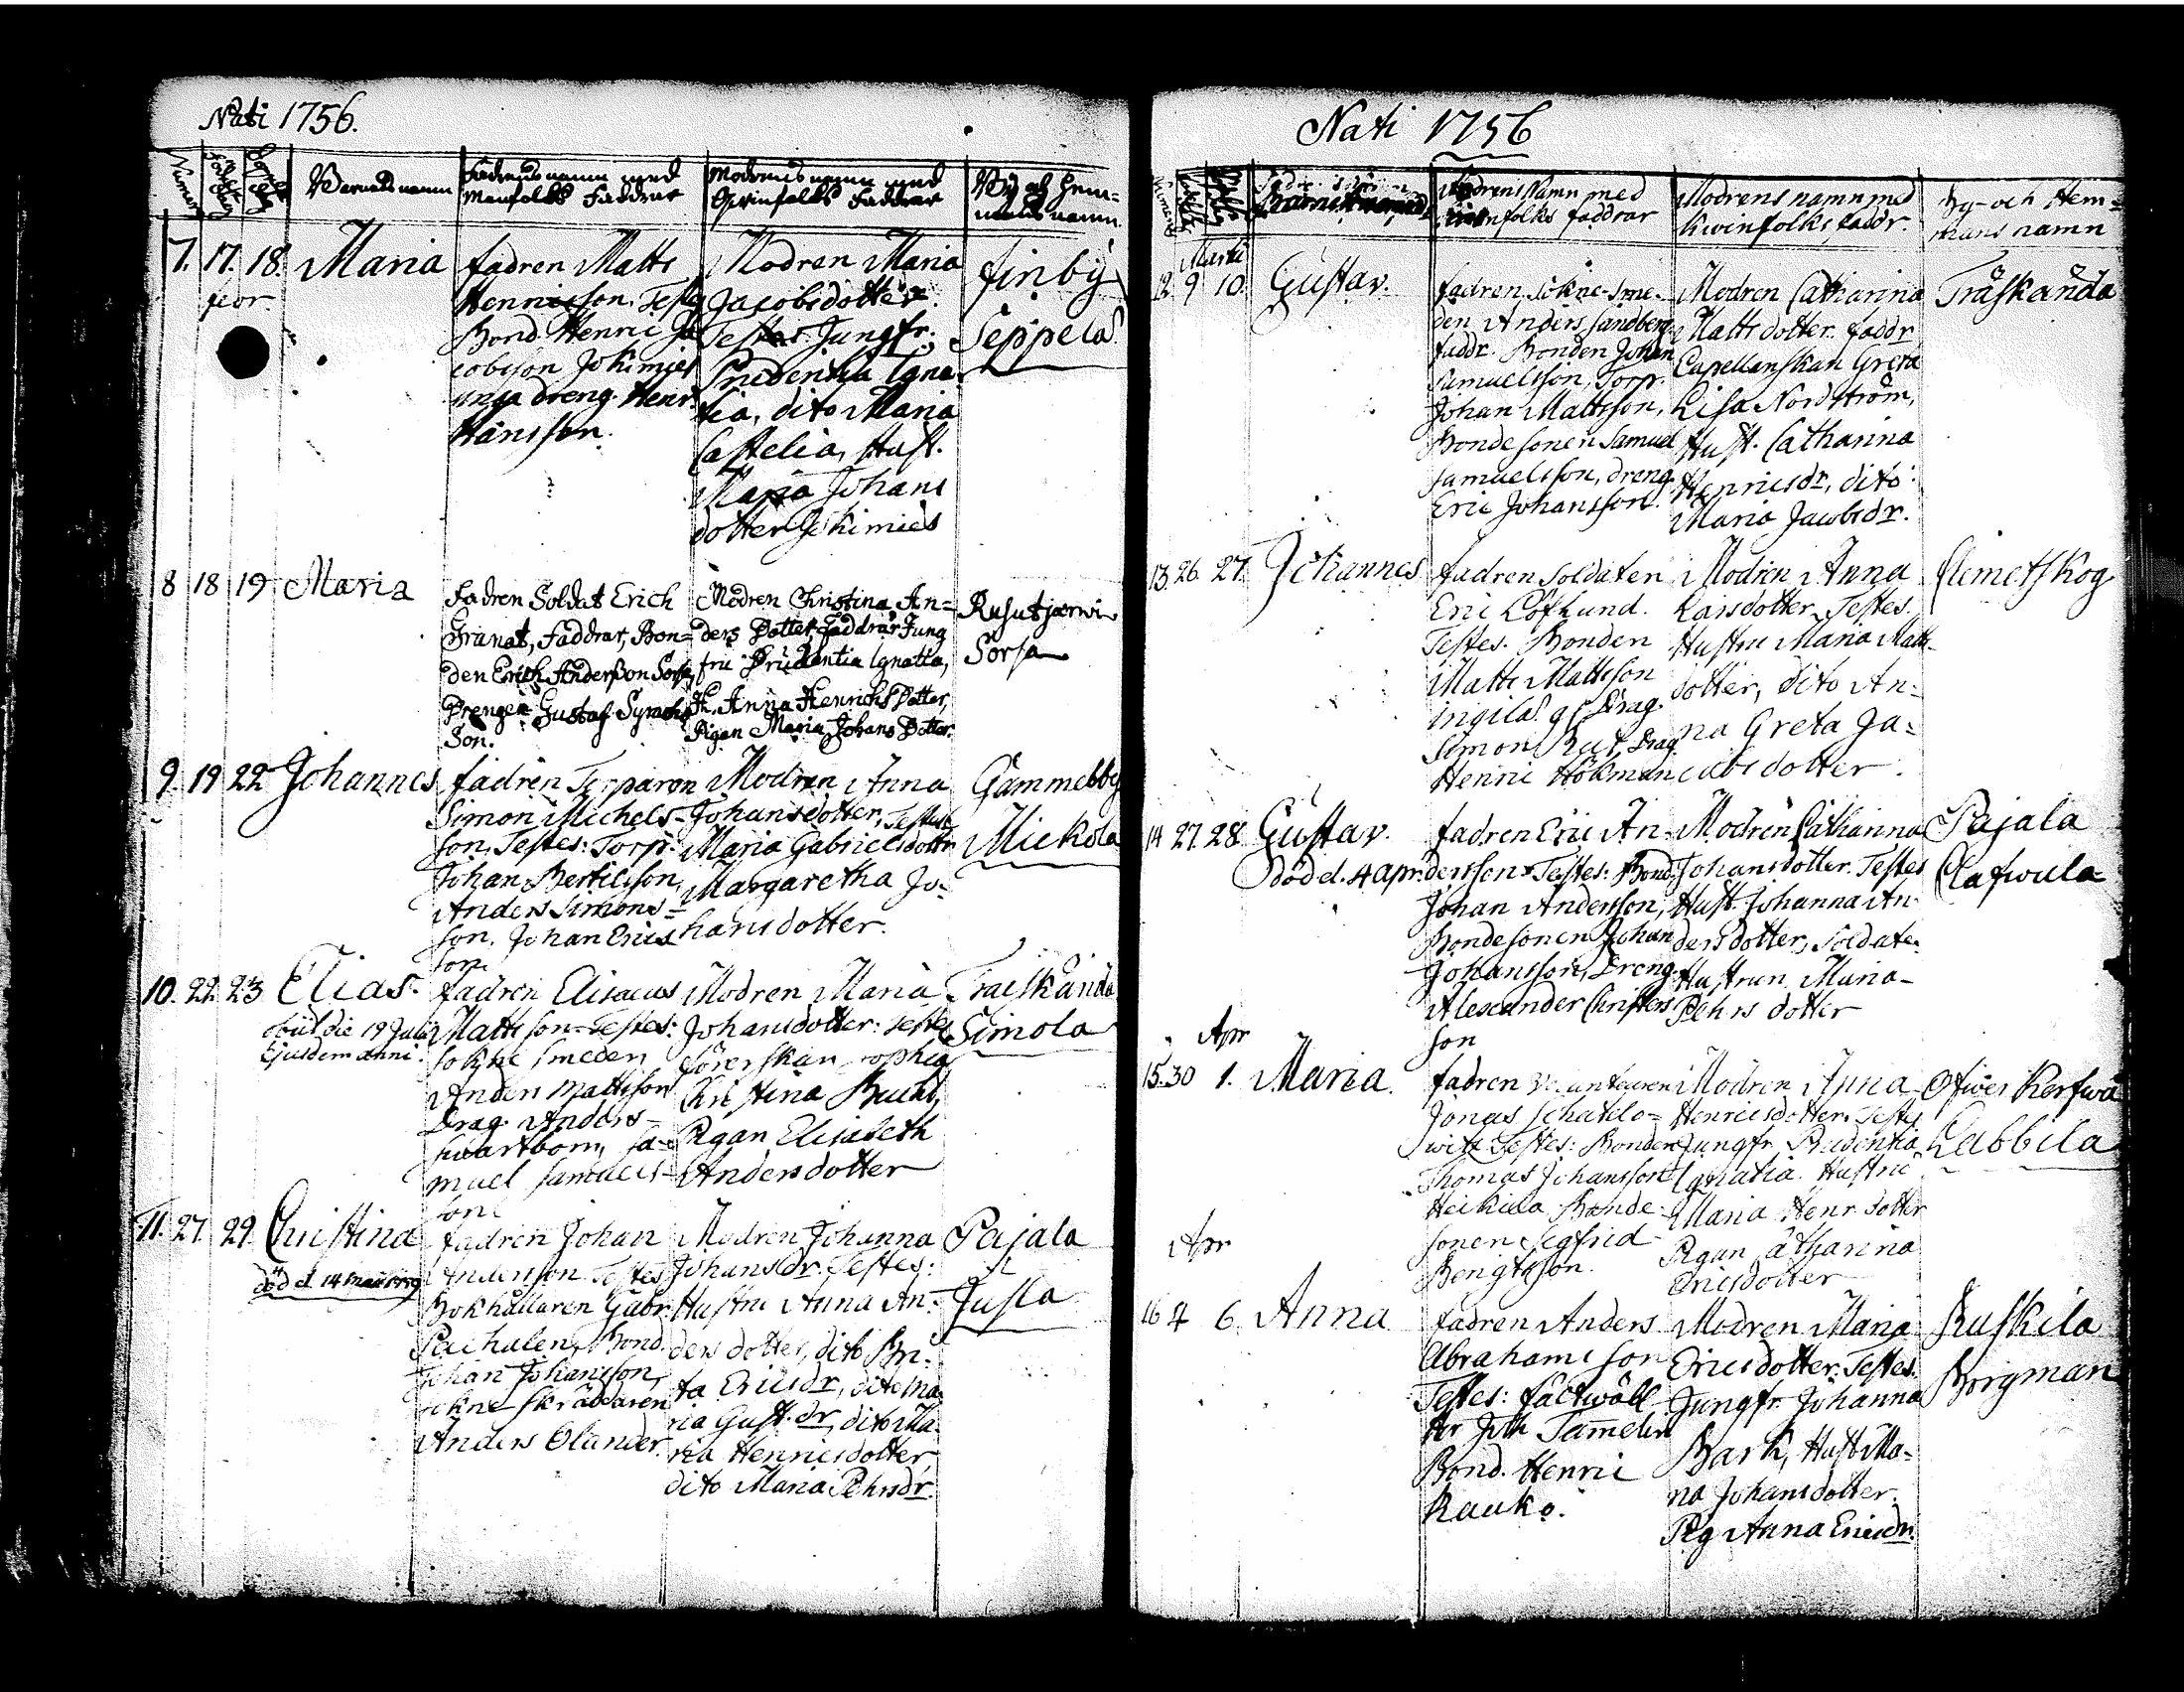 Nati 1756.
Barnets namn
Fadrens namn med
Manfolks Faddrar
Modrens namn med
Qvinfolks Faddrar
By och Hem=
mans namn
7. 17. 18. Maria
febr
fadren Matts
Henricsson. Testes
Bond. Henric Ja
cobsson Jokimies
dreng. Henr.
Hansson.
Modren Maria
Jacobsdotter.
Testes Jungfr.
Prudentia Igna
tia, dito Maria
Castelia, Hust.
Maria Johans
dotter Jokimies
finby
Seppelas
8 18 19 Maria
Fadren Soldat Erich
Granat, Faddrar, Bon=
den Erich Anderßon Sorsa,
Drengen Gustaf
Son.
Modren Christina An=
ders Dotter, Faddrar Jung
fru Prudentia Ignatia,
H. Anna Henrichs Dotter,
Pigan Maria Johans Dotter.
Rusutjærwi
Sorsa
9. 19 22 Johannes
fadren Torparen
Simon Michels-
son, Testes: Torp.
Johan Bertilsson,
Anders Simons=
son. Johan Erics
son.
Modren Anna
Johansdotter, Testes
Maria Gabrielsdotter
Margaretha Jo-
hansdotter.
Gammelby
Mickola
10. 22. 23 Elias.
obiit die 19 Julii
Ejusdem anni.
fadren Elisaeus
Mattsson Testes:
sokne smeden
Anders Mattsson
Drag. Anders
Swartbom, Sa-
muel Samuels-
son
Modren Maria
Johansdotter: Testes
Sophia
Christina Bucht,
Pigan Elisabeth
Andersdotter
Traiskända
Simola
11. 27. 29. Christina
död d 14 maii
fadren Johan
Andersson Testes
Bokhållaren Gabr.
Pachalen, Bond.
Johan Johansson,
sokne skräddaren
Anders Olander.
Modren Johanna
Johansdr. Testes:
Hustru Anna An-
ders dotter, dito Bri-
ta Ericsdr, dito Ma
ria Gust. dr, dito Ma
ria Henricsdotter
dito Maria Pehrsdr.
Pajala
Jusla
Nati 1756
Modrens namn med
kwinfolks faddr.
By- och Hem=
mans namn
Marti
12. 9 10. Gustav.
fadren Sokne Sme-
den Anders Sandberg.
faddr. Bonden Johan
Samuelsson, Torp.
Johan Mattsson,
Bondesonen Samuel
Samuelsson, dreng
Eric Johansson.
Modren Catharina
Mattsdotter. faddr
Capellanskan Greta
Lisa Nordström,
Hust. Catharina
Henricsdr, dito
Maria Jacobsdr.
Träskända
13. 26 27. Johannes
fadren Soldaten
Eric Löflund.
Testes. Bonden
Matts Mattsson
Drag.
Simon Rut, Drag
Henric Hökman
Modren Anna
Larsdotter Testes.
Hustru Maria Matts-
dotter, dito An-
na Greta Ja-
cobsdotter.
Klemetskog
14 27. 28 Gustav.
död d. 4 apr.
fadren Eric An-
dersson Testes: Bond
Johan Andersson,
Bondesonen Johan
Johansson, Dreng
Alexander Christers
son
Modren Catharina
Johansdotter. Testes
Hust Johanna An-
dersdotter, Soldate
Hustrun Maria
Pehrs dotter
Pajala
Clafwula
Apr
15. 30 1. Maria.
fadren Volunteuren
Jonas Schatelo=
witz Testes: Bonden
Thomas Johansson
Heikila Bonde-
sonen Segfrid
Bengtsson.
Modren Anna
Henricsdotter Testes
Jungfr. Prudentia
Ignatia. Hustru
Maria Henr. dotter
Pigan Catharina
Ericsdotter
Ofwer Kerfwa
Labbila
Apr
16 4 6 Anna
fadren Anders
Abrahamsson
Testes: fäktwäbl
Tamelin
Bond. Henric
Rauko.
Modren Maria
Ericsdotter: Testes.
Jungfr. Johanna
Bark, Hust Ma-
ria Johansdotter.
Pig Anna Ericsdr.
Ruskila
Borgman